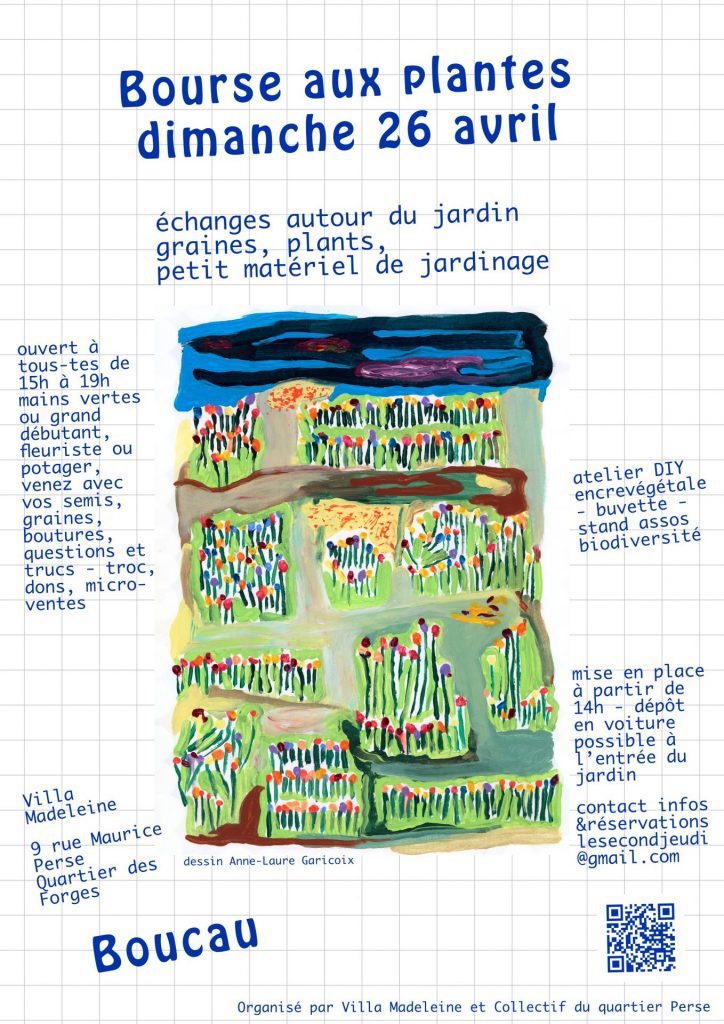 Bourse aux plantes
dimanche 26 avril
échanges autour du jardin
graines, plants,
petit matériel de jardinage
ouvert à
tous-tes de
15h à 19h
mains vertes
ou grand
débutant,
fleuriste ou
potager,
venez avec
vos semis,
graines,
boutures,
questions et
trucs - troc,
dons, micro-
ventes
atelier DIY
encrevégétale
- buvette -
stand assos
biodiversité
mise en place
à partir de
14h - dépôt
en voiture
possible à
l'entrée du
jardin
contact infos
&réservations
lesecondjeudi
@gmail.com
Villa
Madeleine
9 rue Maurice
Perse
Quartier des
Forges
dessin Anne-Laure Garicoix
Boucau
Organisé par Villa Madeleine et Collectif du quartier Perse